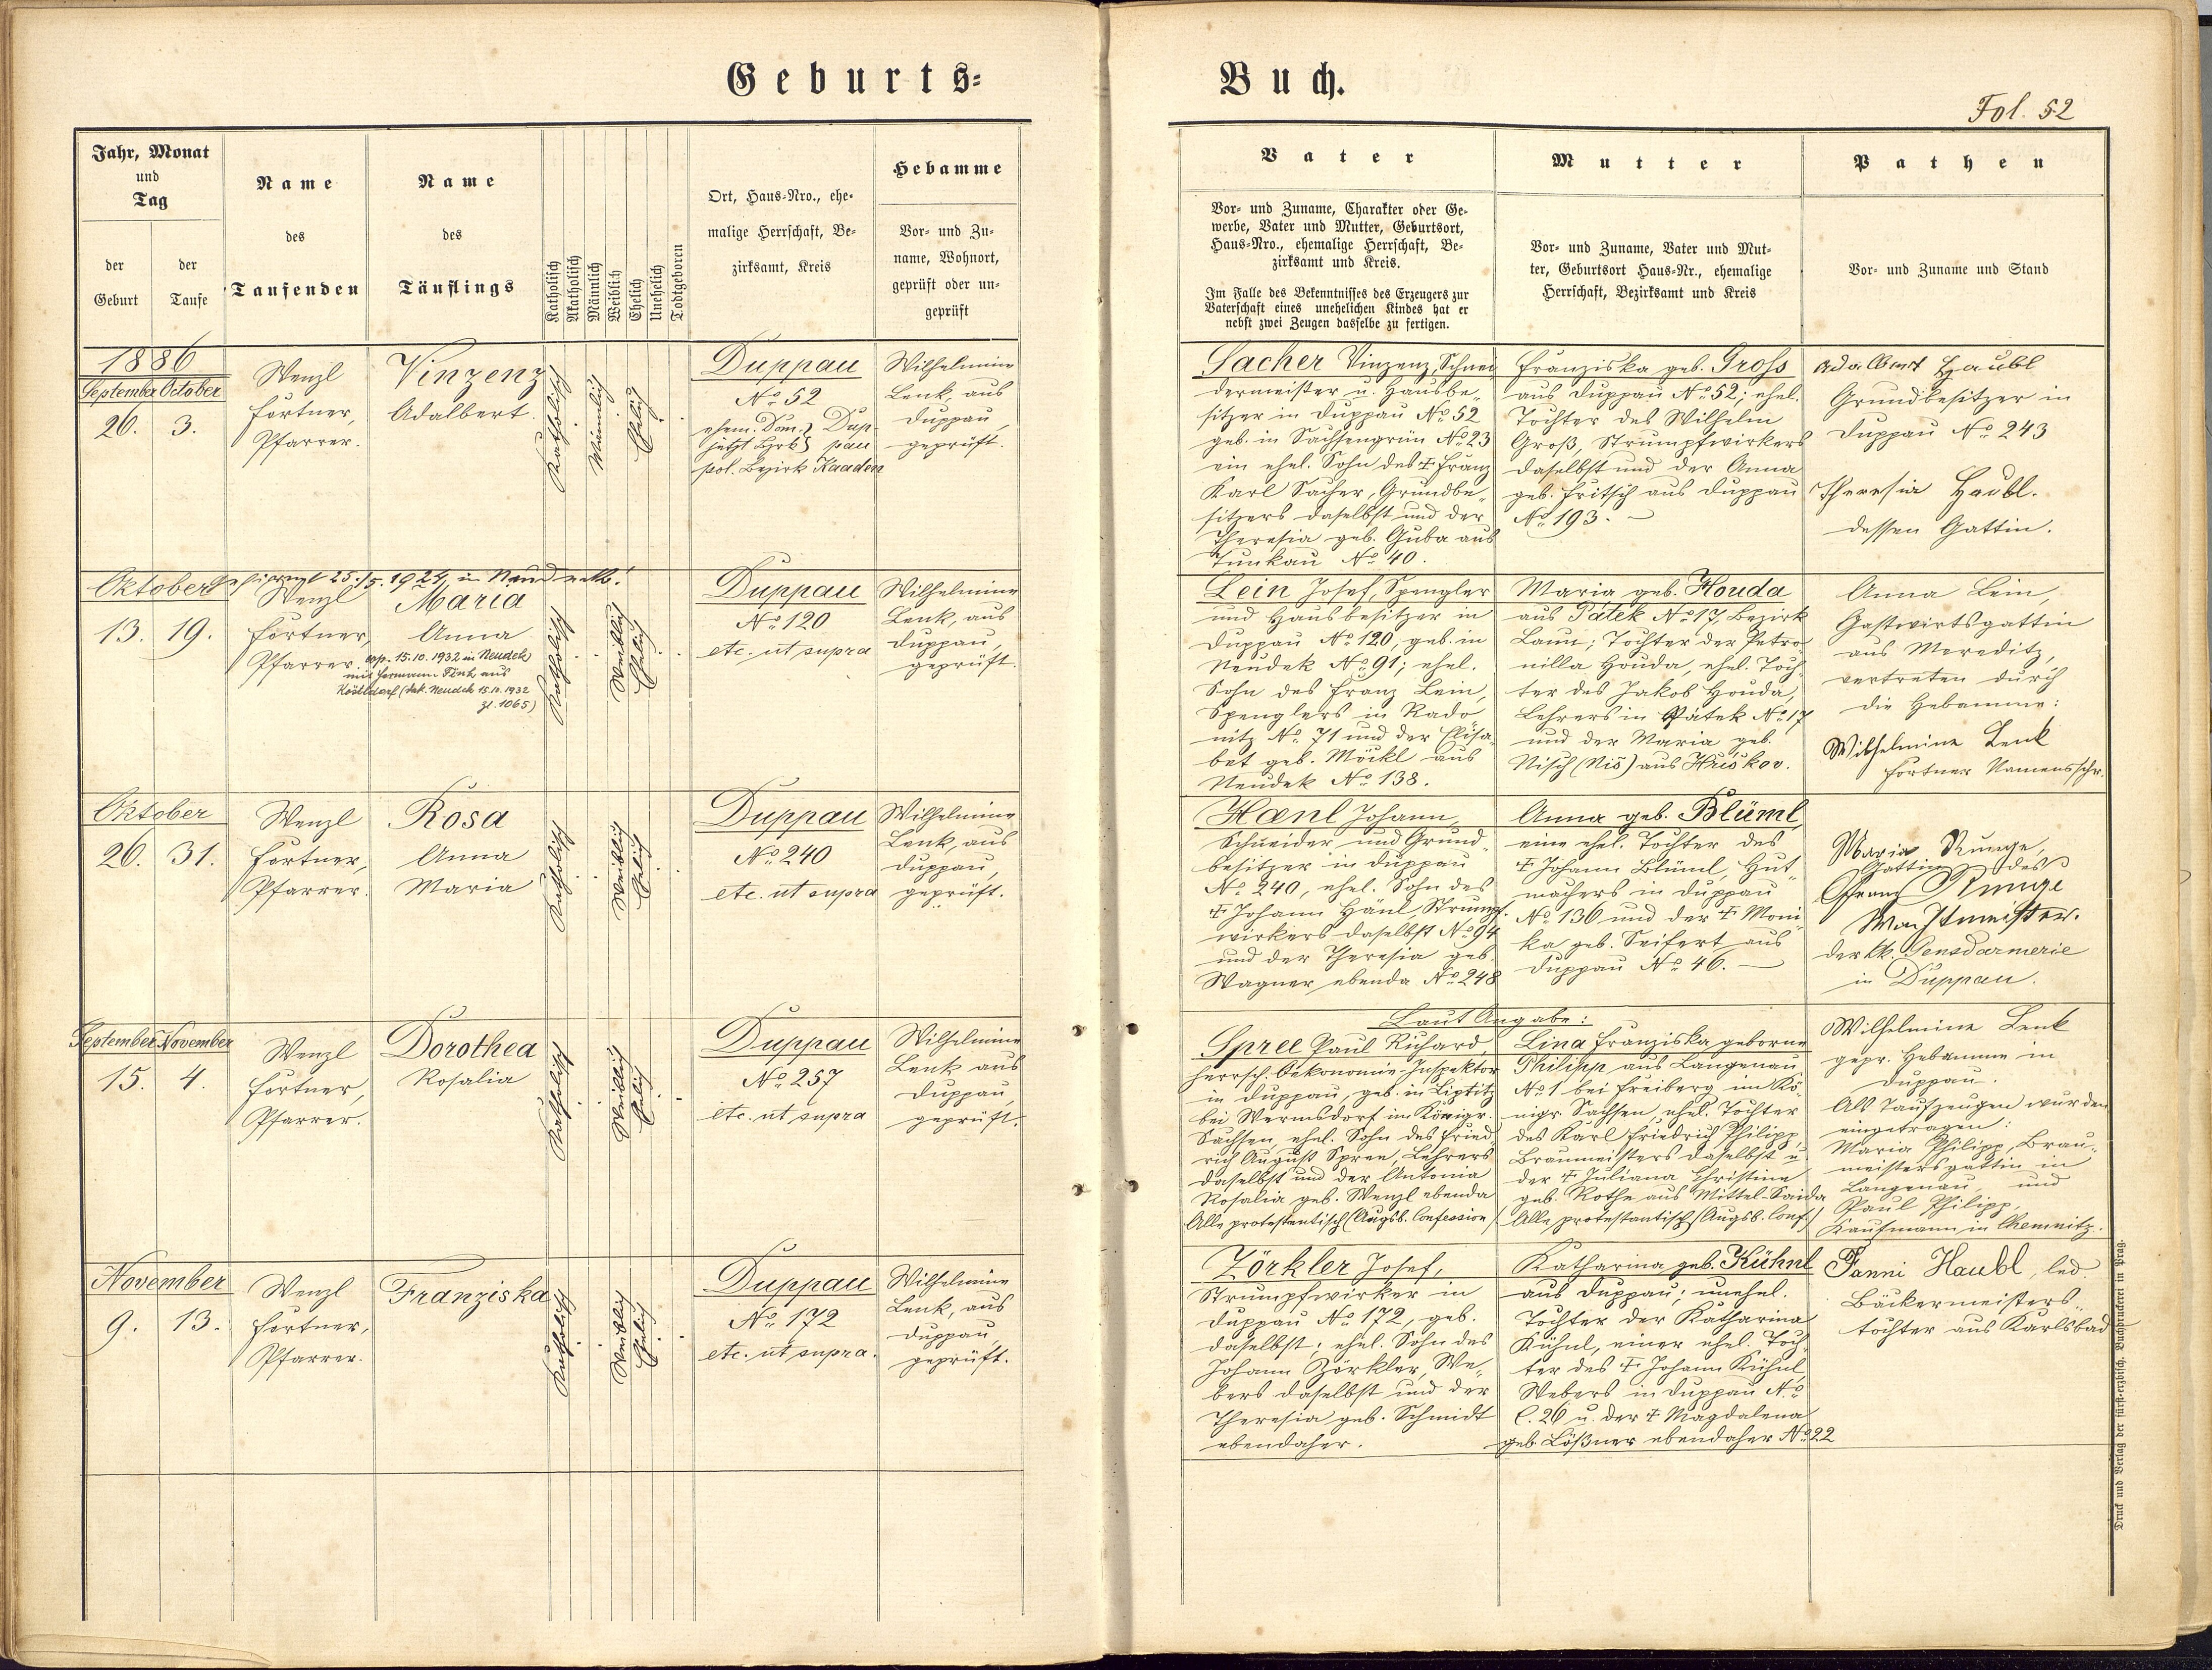 Geburts=
Buch.
Fol. 52
Jahr, Monat
und
Tag
der
Geburt
der
Taufe
Name
des
Taufenden
Name
des
Täuflings
Katholisch
Akatholisch
Männlich
Weiblich
Ehelich
Unehelich
Todtgeboren
Ort, Haus-Nro., ehe-
malige Herrschaft, Be-
zirksamt, Kreis
Hebamme
Vor- und Zu-
name, Wohnort,
geprüft oder un-
geprüft
Vater
Vor- und Zuname, Charakter oder Ge-
werbe, Vater und Mutter, Geburtsort,
Haus-Nro., ehemalige Herrschaft, Be-
zirksamt und Kreis.
Im Falle des Bekenntnisses des Erzeugers zur
Vaterschaft eines unehelichen Kindes hat er
nebst zwei Zeugen dasselbe zu fertigen.
Mutter
Vor- und Zuname, Vater und Mut-
ter, Geburtsort Haus-Nr., ehemalige
Herrschaft, Bezirksamt und Kreis
Pathen
Vor- und Zuname und Stand
1886
September October
26. 3.
Wenzl
Fortner,
Pfarrer.
Vinzenz
Adalbert.
Katholisch
Männlich
Ehelich
Duppau
No 52
ehem. Dom. } Dup
jetzt Bzrk } pau
pol. Bezirk Kaaden
Wilhelmine
Lenk, aus
Duppau,
geprüft.
Sacher Vinzenz, Schnei
dermeister u. Hausbe-
sitzer in Duppau No 52
geb. in Sachsengrün No 23
ein ehel. Sohn des † Franz
Karl Sacher, Grundbe-
sitzers daselbst und der
Theresia geb. Guba aus
Tunkau No 40.
Franziska geb. Gross
aus Duppau No 52; ehel.
Tochter des Wilhelm
Groß, Strumpfwirkers
daselbst und der Anna
geb. Fritsch aus Duppau
No 193. —
Adalbert Haubl
Grundbesitzer in
Duppau No 243
Theresia Haubl.
dessen Gattin.
Oktober
25./5. 1924, in
13. 19.
Wenzl
Fortner,
Pfarrer.
Maria
Anna
cop. 15.10.1932 in Neudek
mit Hermann Fink aus
(dek. Neudek 15.10.1932
Zl. 1065)
Katholisch
Weiblich
Ehelich
Duppau
No 120
etc. ut supra
Wilhelmine
Lenk, aus
Duppau,
geprüft.
Lein Josef, Spengler
und Hausbesitzer in
Duppau No 120, geb. in
Neudek No 91; ehel.
Sohn des Franz Lein,
Spenglers in Rado
nitz No 71 und der Elisa
bet geb. Möckl aus
Neudek No 138.
Maria geb. Houda
aus Pátek No 17, Bezirk
Laun; Tochter der Petro
nilla Houda, ehel. Toch
ter des Jakob Houda,
Lehrers in Pátek No 17
und der Maria geb.
Nisch (Niš) aus Hriškov.
Anna Lein,
Gastwirtsgattin
aus Meretitz,
vertreten durch
die Hebamme:
Wilhelmine Lenk
Fortner Namensschr.
Oktober
26. 31.
Wenzl
Fortner,
Pfarrer.
Rosa
Anna
Maria
Katholisch
Weiblich
Ehelich
Duppau
No 240
etc. ut supra
Wilhelmine
Lenk, aus
Duppau,
geprüft.
Hænl Johann,
Schneider und Grund-
besitzer in Duppau
No 240, ehel. Sohn des
† Johann Hänl, Strumpf-
wirkers daselbst No 94
und der Theresia geb.
Wagner ebenda No 248
Anna geb. Blüml,
eine ehel. Tochter des
† Johann Blüml, Hut-
machers in Duppau
No 136 und der † Moni
ka geb. Seifert aus
Duppau No 46. —
Maria Runge,
Gattin des
Franz Runge
Wachtmeister.
der kk. Gensdarmerie
in Duppau.
September November
15. 4.
Wenzl
Fortner,
Pfarrer.
Dorothea
Rosalia
Katholisch
Weiblich
Ehelich
Duppau
No 257
etc. ut supra
Wilhelmine
Lenk aus
Duppau,
geprüft.
Laut Angabe:
Spree Paul Richard,
herrsch. Oekonomie-Inspektor
in Duppau, geb. in Liptitz
bei Wermsdorf im Königr.
Sachsen, ehel. Sohn des Fried
rich August Spree, Lehrers
daselbst und der Antonia
Rosalia geb. Wenzl ebenda
Alle protestantisch (Augsb. Confession)
Lina Franziska geborne
Philipp aus Langenau
No 1 bei Freiberg im Kö-
nigr. Sachsen, ehel. Tochter
des Karl Friedrich Philipp,
Braumeisters daselbst u.
der † Juliana Christine
geb. Rothe aus Mittel-Saida
Alle protestantisch (Augsb. Conf.)
Wilhelmine Lenk
gepr. Hebamme in
Duppau.
Als Taufzeugen wurden
eingetragen:
Maria Philipp, Brau-
meistersgattin in
Langenau, und
Paul Philipp,
Kaufmann in Chemnitz.
November
9. 13.
Wenzl
Fortner,
Pfarrer.
Franziska
Katholisch
Weiblich
Ehelich
Duppau
No 172
etc. ut supra.
Wilhelmine
Lenk, aus
Duppau,
geprüft.
Zörkler Josef,
Strumpfwirker in
Duppau No 172, geb.
daselbst; ehel. Sohn des
Johann Zörkler, We-
bers daselbst und der
Theresia geb. Schmidt
ebendaher.
Katharina geb. Kühnl
aus Duppau; unehel.
Tochter der Katharina
Kühnl, einer ehel. Toch
ter des † Johann Kühnl,
Webers in Duppau No
C. 26 u. der † Magdalena
geb. Lößner ebendaher No 22
Fanni Haubl, led.
Bäckermeisters
tochter aus Karlsbad
Druck und Verlag der fürst-erzbisch. Buchdruckerei in Prag.